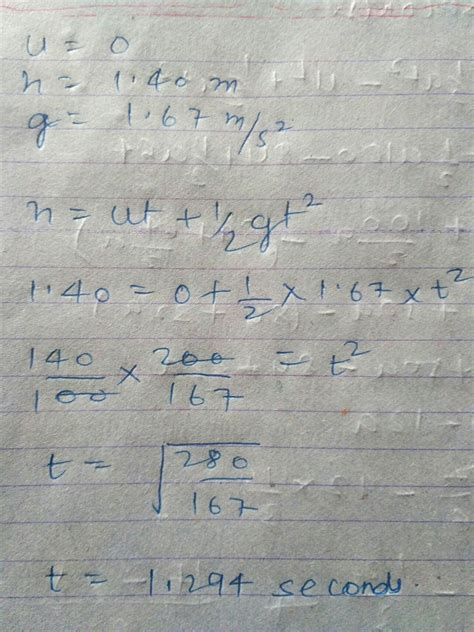 u = 0
h = 1.40 m
g = 1.67 m/s²
h = ut + 1/2 gt²
1.40 = 0 + 1/2 × 1.67 × t²
140/100 × 200/167 = t²
t = √(280/167)
t = 1.294 seconds.